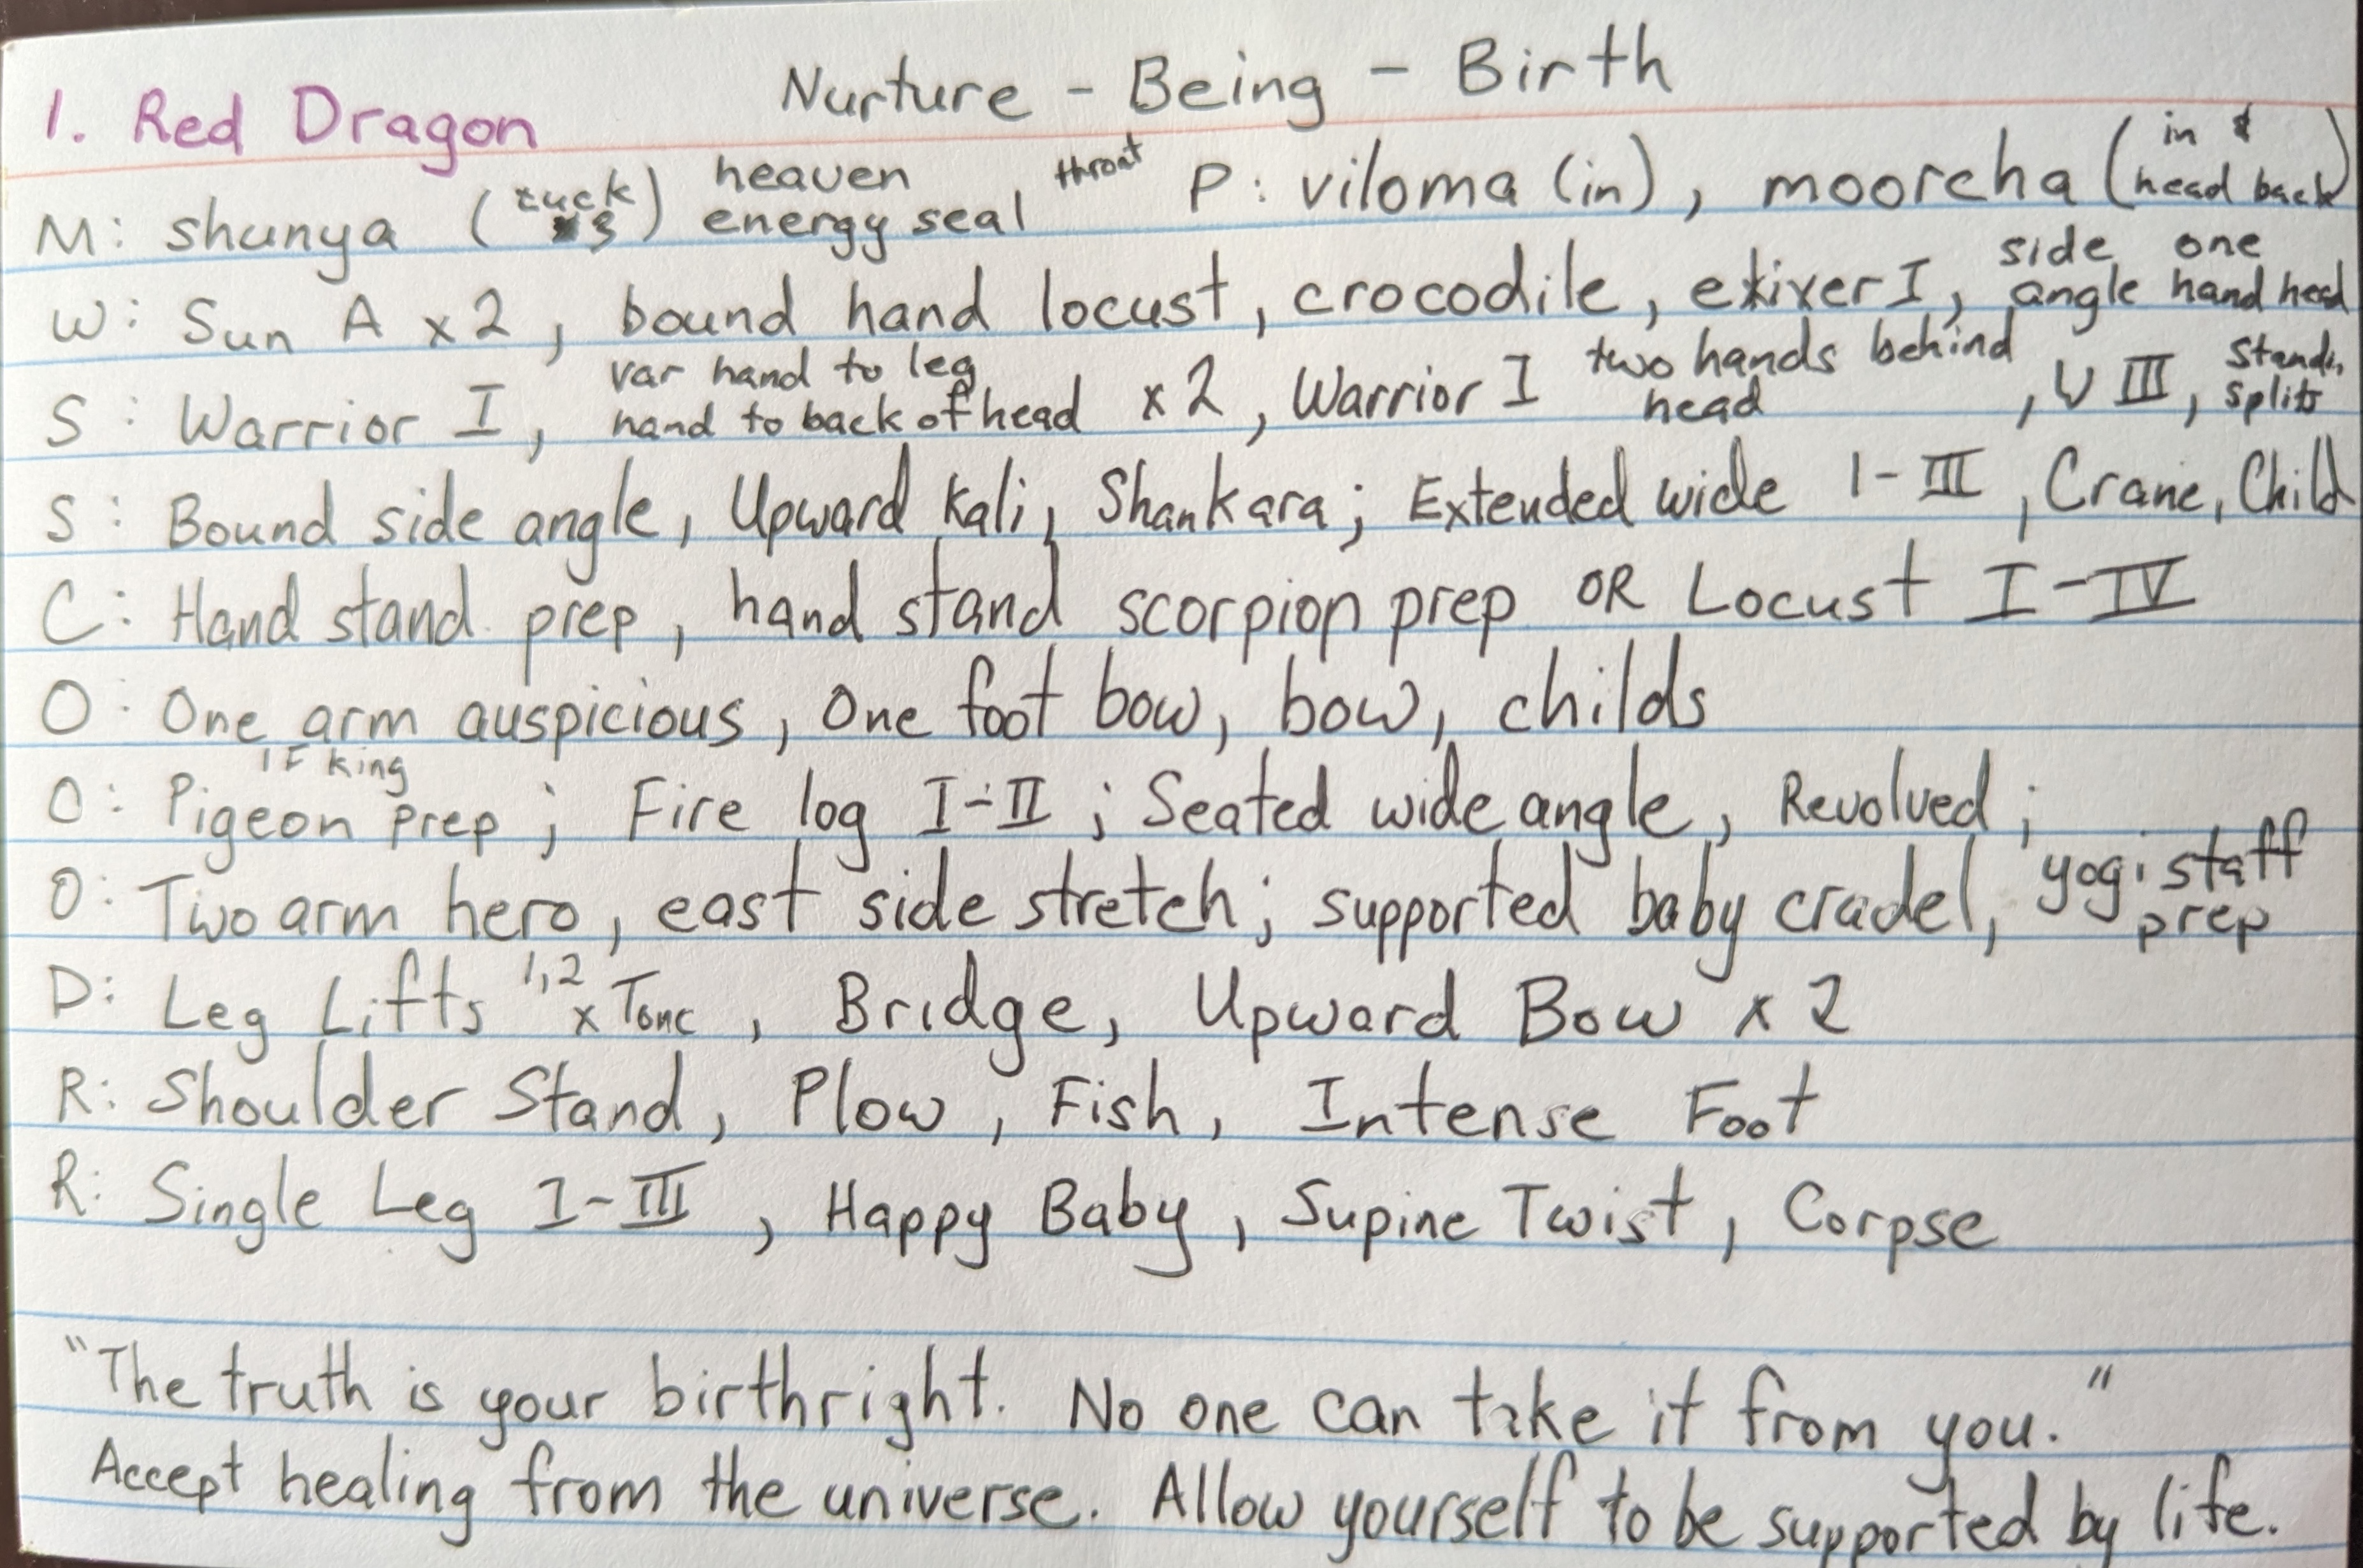 1. Red Dragon Nurture - Being - Birth
M: shunya (tuck 3) heaven energy seal, throat P: viloma (in), moorcha (in & head back)
W: Sun A x2, bound hand locust, crocodile, I, side angle one hand head
S: Warrior I, var hand to leg hand to back of head x2, Warrior I two hands behind head, W III, stand. splits
S: Bound side angle, Upward Kali, Shankara; Extended wide I-III, Crane, Child
C: Hand stand prep, hand stand scorpion prep OR Locust I-IV
O: One arm auspicious, One foot bow, bow, childs
O: Pigeon 1F king prep; Fire log I-II; Seated wide angle, Revolved;
O: Two arm hero, east side stretch; supported baby cradel, yogi staff prep
D: Leg Lifts 1,2 x Tone, Bridge, Upward Bow x 2
R: Shoulder Stand, Plow, Fish, Intense Foot
R: Single Leg I-III, Happy Baby, Supine Twist, Corpse
"The truth is your birthright. No one can take it from you."
Accept healing from the universe. Allow yourself to be supported by life.